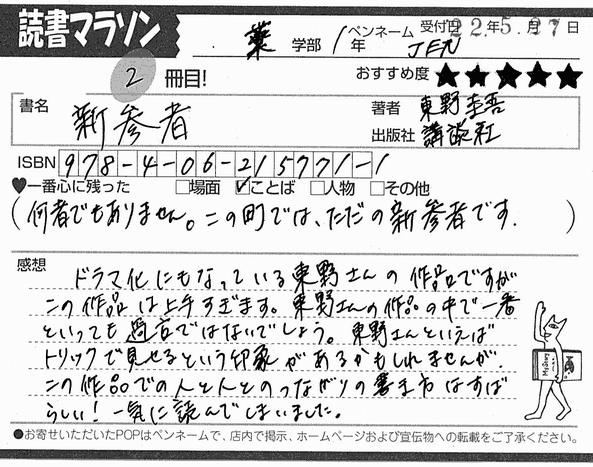 読書マラソン
薬 学部 1年 ペンネーム JEN 受付日 22年5.27日
2 冊目! おすすめ度 ★★★★★
書名 新参者
著者 東野圭吾
出版社 講談社
ISBN 978-4-06-215771-1
♥一番心に残った □場面 ☑ことば □人物 □その他
(何者でもありません。この町では、ただの新参者です. )
感想
ドラマ化にもなっている東野さんの作品ですが
この作品は上手すぎます。東野さんの作品の中で一番
といっても過言ではないでしょう。東野さんといえば
トリックで見せるという印象があるかもしれませんが、
この作品での人と人とのつながりの書き方はすば
らしい!一気に読んでしまいました。
●お寄せいただいたPOPはペンネームで、店内で掲示、ホームページおよび宣伝物への転載をご了承ください。